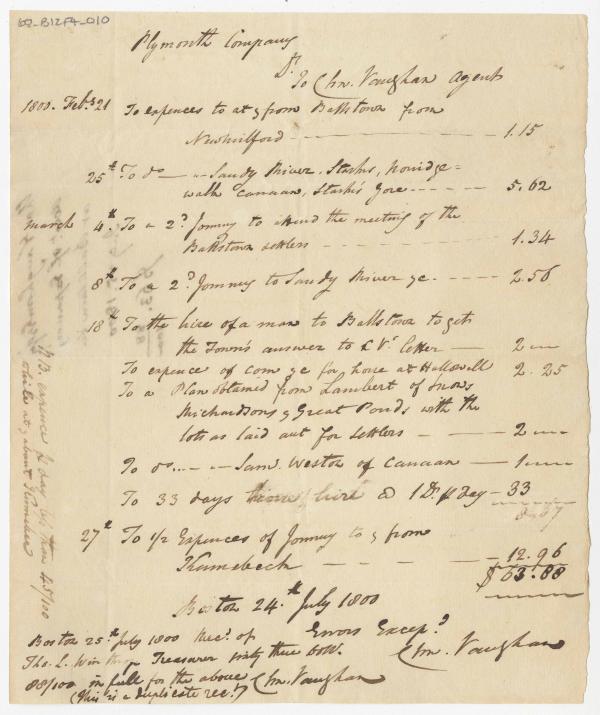 62-B12F4-010
Plymouth Company
Dr. To Chs. Vaughan Agent
1800. Feby 21 To expences to at & from Ballstown from
Newmilford — 1.15
25th To do — Sandy River, Starks, Noridge=
walk Canaan, Stark's Gore — 5.62
march 4th To a 2d Journey to attend the meeting of the
Ballstown settlers — 1.34
8th To a 2d Journey to Sandy River &c. — 2.56
18th To the hire of a man to Ballstown to get
the Town's answer to C Vs. letter — 2 —
To expence of corn &c for horse at Hallowell 2.25
To a Plan obtained from Lambert of
Richardsons & Great Ponds with the
lots as laid out for settlers — 2 —
To do — Saml. Weston of Canaan — 1 —
To 33 days horse hire @ 1 Dr. p day — 33
27th To 1/2 Expences of Journey to & from
Kennebeck — 12.96
$63.88
Boston 24th July 1800
Errors Excepd.
Chs. Vaughan
Boston 25th July 1800 Recd. of
Tho. L. Winthrop Treasurer sixty three Dolls.
88/100 in full for the above
(this is a duplicate rect.) Chs. Vaughan
NB. expence p day less than 45/100
while at & about Kennebec